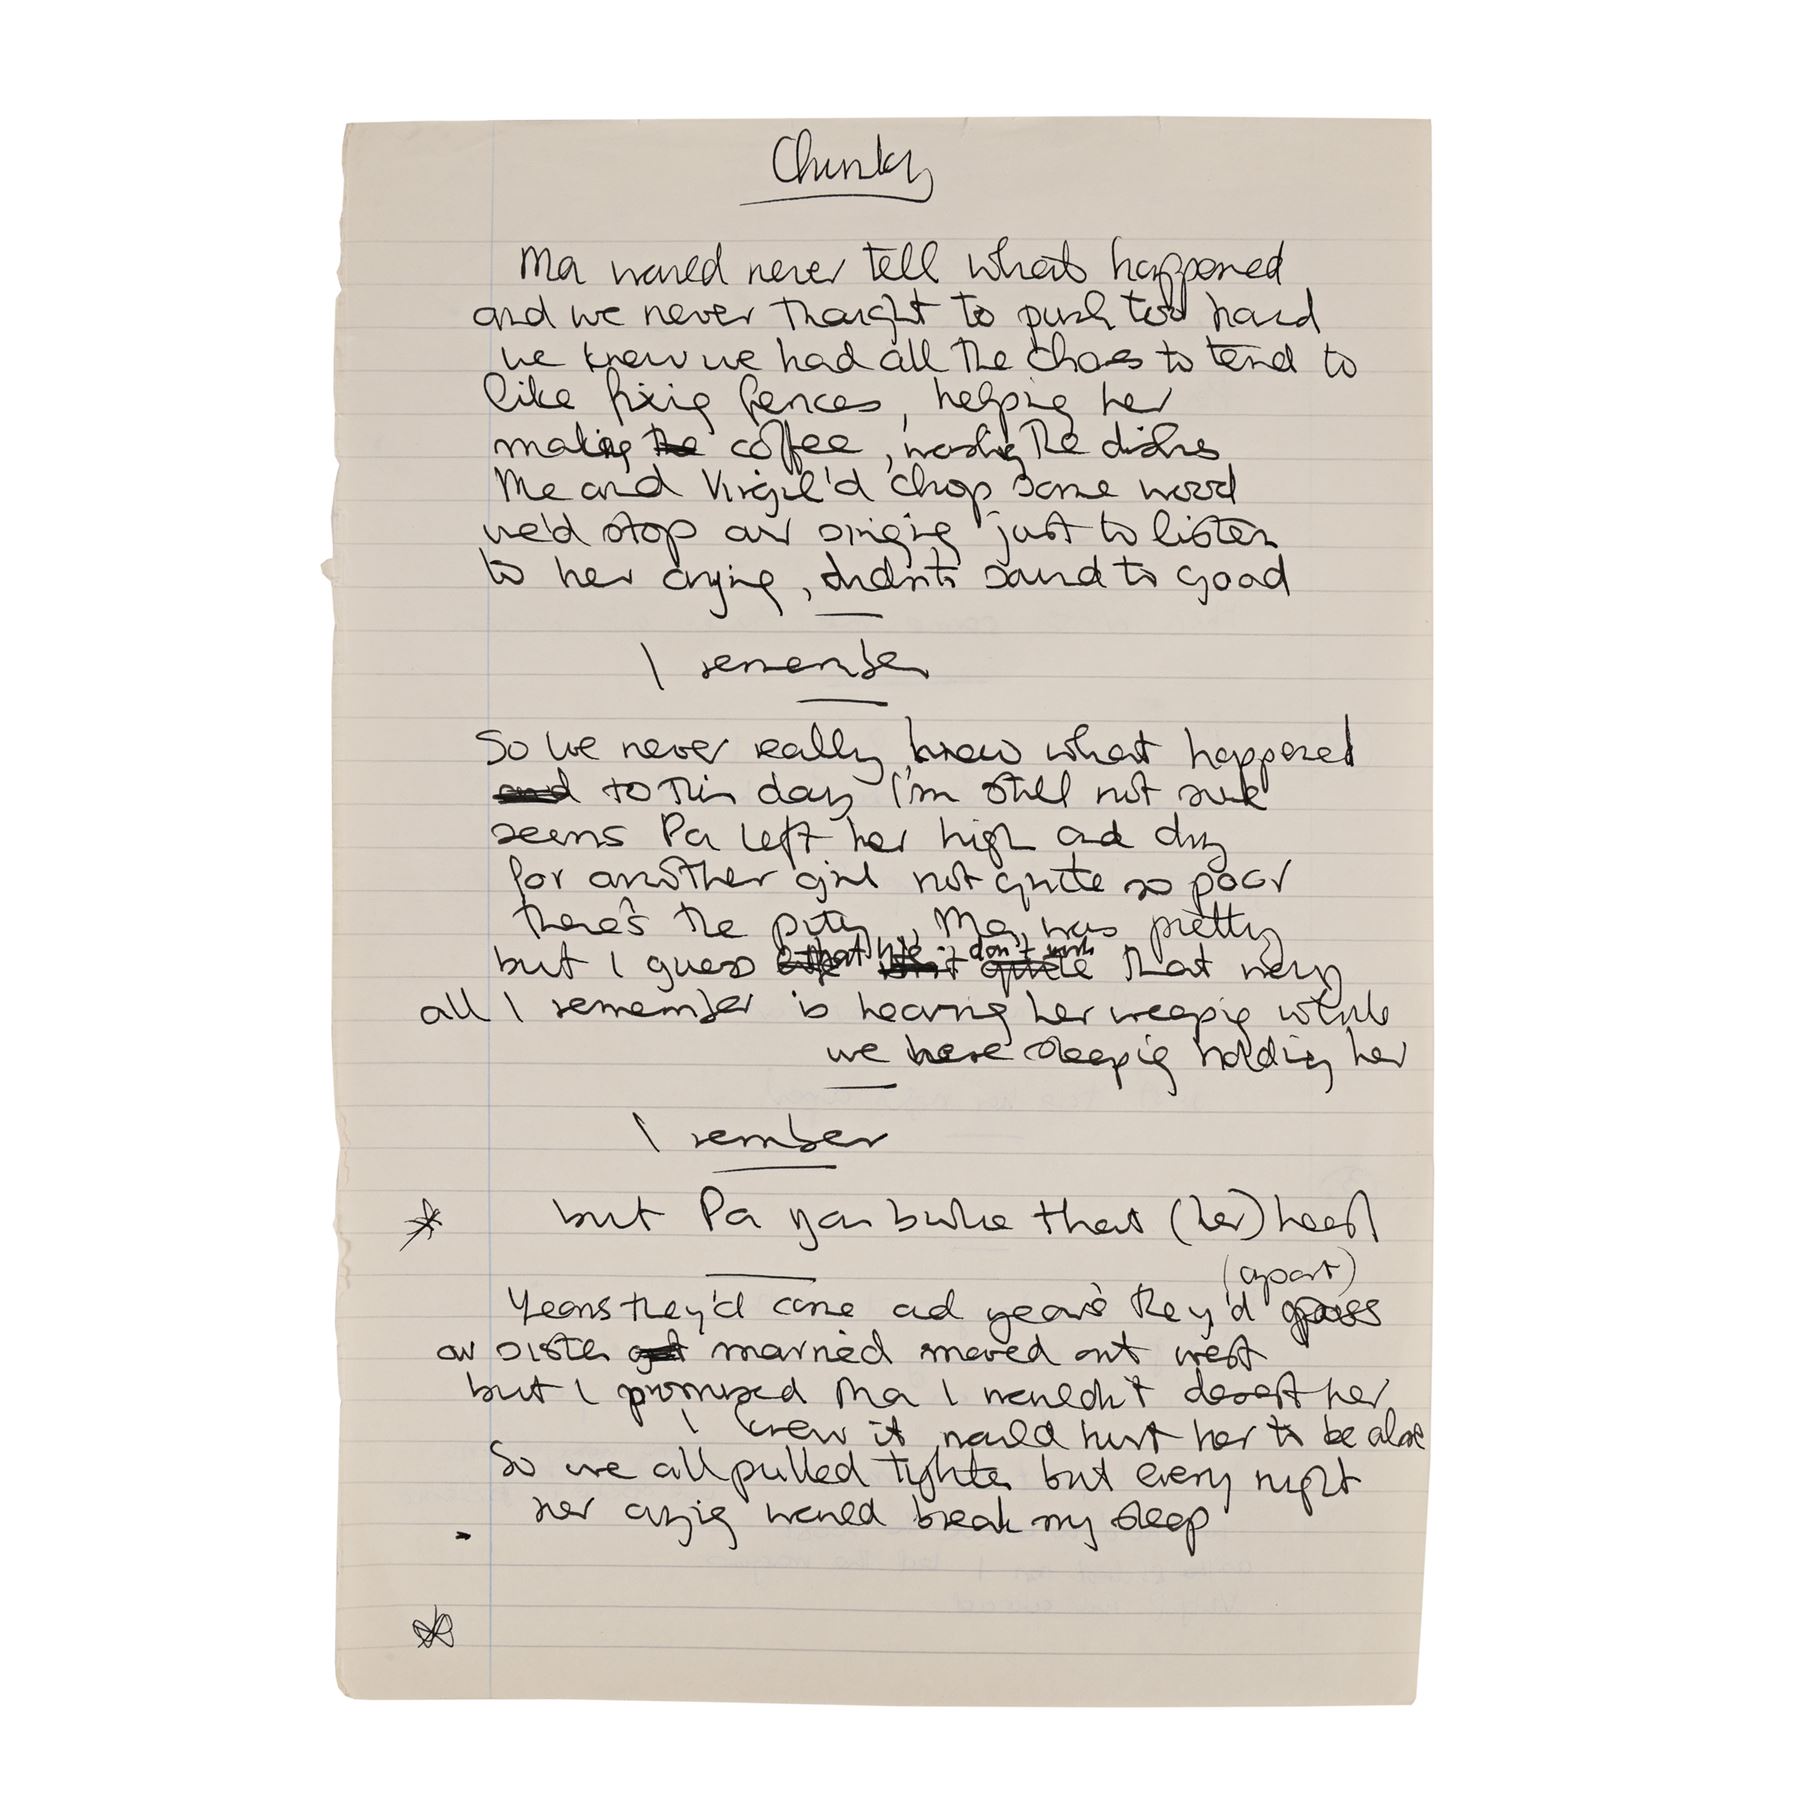 Chunky
Ma would never tell what happened
and we never thought to push too hard
we knew we had all the chores to tend to
like fixing fences, helping her
making the coffee, washing the dishes
Me and Virgil'd chop some wood
we'd stop our singing just to listen
to her crying, didn't sound to good
I remember
So we never really knew what happened
and to this day I'm still not sure
seems Pa left her high and dry
for another girl not quite so poor
there's the pity, Ma was pretty
that life don't work
but I guess quite that way
all I remember is hearing her weeping while
we were sleeping holding her
I rember
* but Pa you broke that (her) heart
(apart)
Years they'd come and years they'd pass
our sister got married moved out west
but I promised Ma I wouldn't desert her
I knew it would hurt her to be alone
So we all pulled tighter but every night
her crying would break my sleep